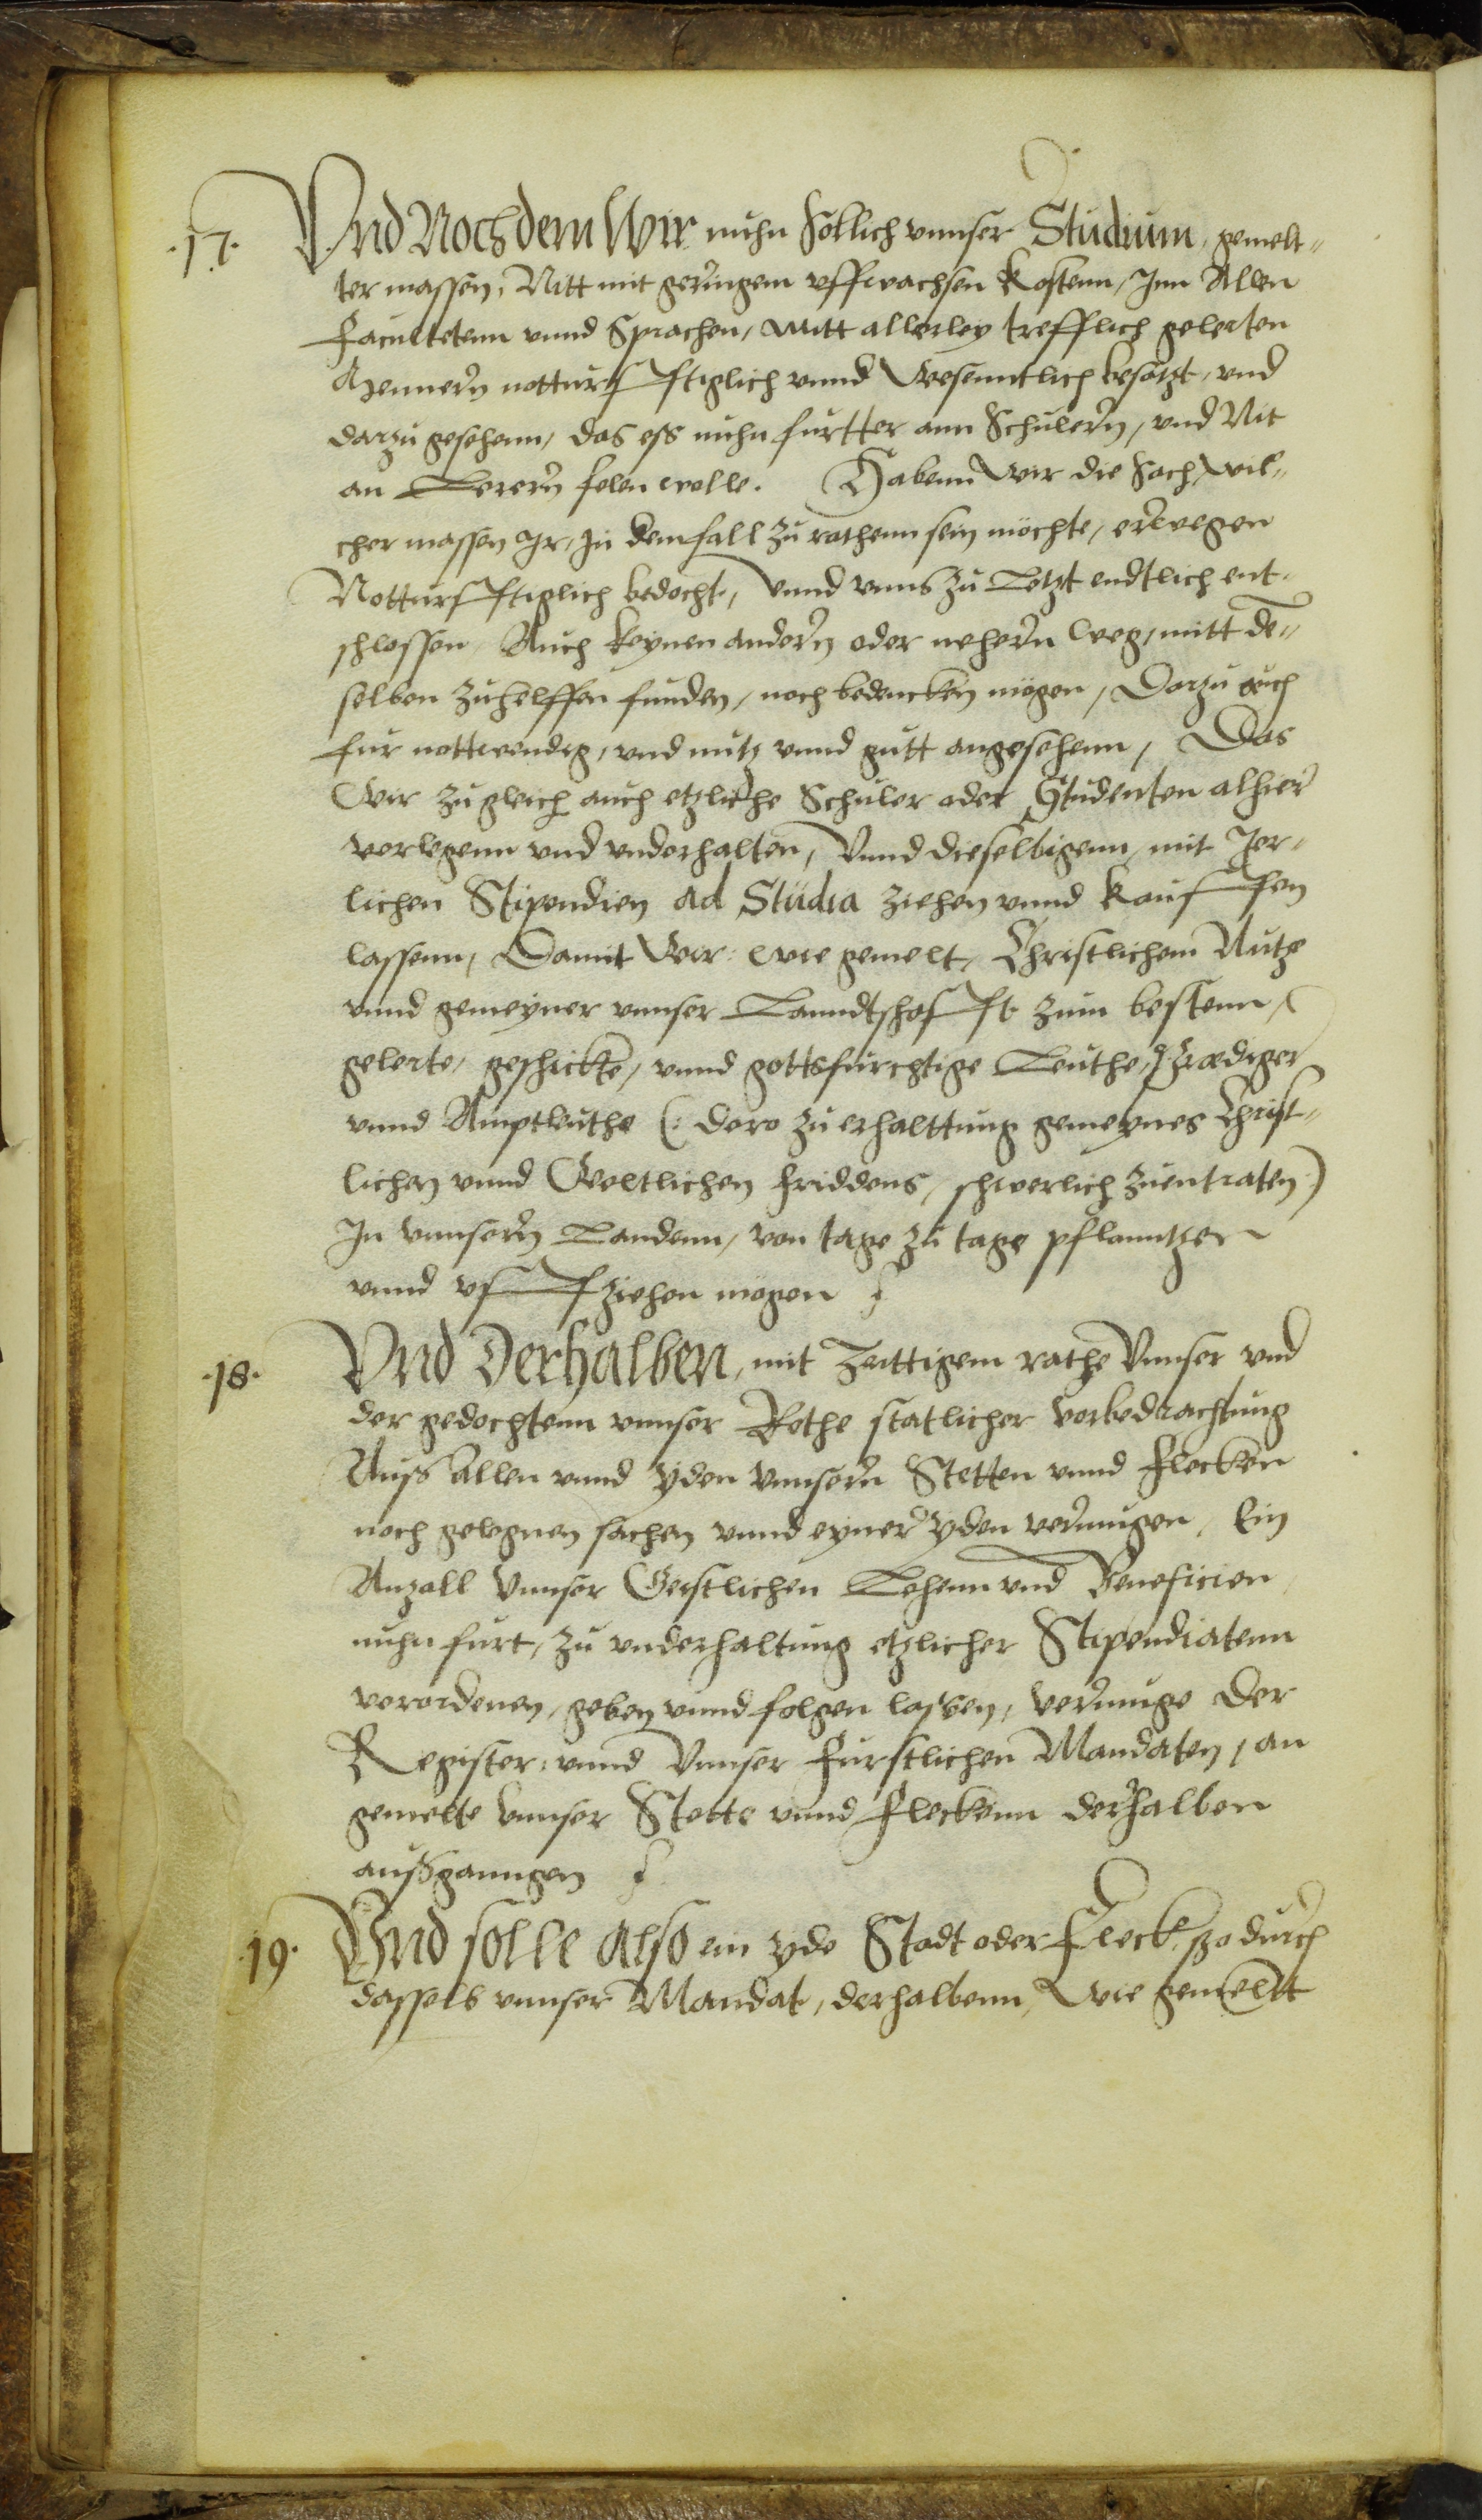 .17. Vnd Nochdem Wir nuhn sollich vnnser Studium, gemelt-
ter massen, Nitt mit geringem vffwachsen kostenn, Inn Allen
Facultetenn vnnd Sprachen, Mitt allerley trefflich gelerten
Mennern notturfftiglich vnnd Wesenntlich besatzt, vnd
darzu gesehenn, das ess nuhn furtter ann Schulern, vnd Nit
an Lerern felen wolle. Habenn Wir die sach, Wil-
cher massen Jr, In dem fall zu rathenn sein möchte, erwegen
Notturfftiglich bedocht, Vnnd vnns zu Letzt endtlich ent-
schlossen Auch keynen andern oder nehern weg, mitt de-
selben zuhelffen funden, noch bedencken mögen, Darzu auch
fur nottwendig, vnd nutz vnnd gutt angesehenn, Das
Wir zugleich auch etzliche Schuler oder Studenten alhier
verlegenn vnd vnderhalten, Vnnd dieselbigenn, mit Jer-
lichen Stipendien ad Studia ziehen vnnd kauffen
lassenn, Damit Wir wie gemelt, Christlichem Nutze
vnnd gemeyner vnnser Lanndtschafft zum bestenn,
gelerte, geschickte, vnnd gottsfurchtige Leuthe, Prediger
vnnd Amptleuthe (: dero zu erhalttung gemeynes Christ-
lichen vnnd Weltlichen friddens, schwerlich zuentraten)
In vnnsern Landenn, von tage zu tage pflanntzen
vnnd vffziehen mögen
.18. Vnd Derhalben, mit Zeittigem rathe Vnnser vnd
der gedochtenn vnnser Rethe statlicher vorbedrachtung
Auss allen vnnd yden Vnnsern Stetten vnnd Flecken
noch gelegnen sachen vnnd eyner yden vermugen, Ein
Anzall Vnnser Geistlichen Lehenn vnd Beneficien
nuhn furt, zu vnderhaltung etzlicher Stipendiatenn
verordenen, geben vnnd folgen lassen, vermuge der
Register, vnnd Vnnser Furstlichen Mandaten, an
gemelte Vnnser Stette vnnd Fleckenn derhalben
aussganngen
19. Vnd solle Also ein yde Stadt oder Fleck, szo durch
dasselb vnnser Mandat, derhalbenn, Wie gemeltt